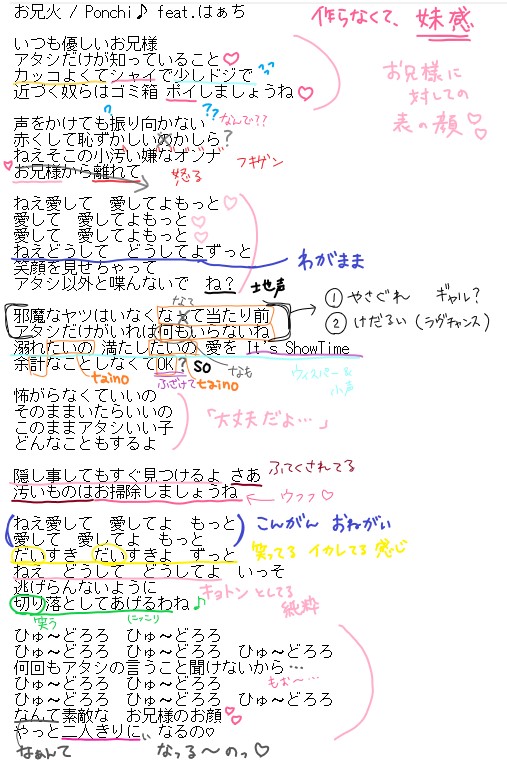 お兄火 / Ponchi♪ feat.はぁち
作らなくて、妹感
いつも優しいお兄様
アタシだけが知っていること♡
カッコよくてシャイで少しドジで ??
近づく奴らはゴミ箱 ポイしましょうね♡
お兄様に
対しての
表の顔♡♡
声をかけても振り向かない ?? なんで??
赤くして恥ずかしいのかしら?
ねえそこの小汚い嫌なオンナ フキゲン
♡お兄様から離れて 怒る
ねえ愛して 愛してよもっと♡
愛して 愛してよもっと♡
愛して 愛してよもっと♡
ねえどうして どうしてよずっと わがまま
笑顔を見せちゃって
アタシ以外と喋んないで ね? 地声
なて
邪魔なヤツはいなくなって当たり前
アタシだけがいれば何もいらないね
① やさぐれ ギャル?
② けだるい (ラヴチャンス)
溺れたいの 満たしたいの 愛を It's ShowTime
余計なことしなくてOK? so なも
taino ふざけて taino
ウィスパー&小声
怖がらなくていいの
そのままいたらいいの
このままアタシいい子
どんなこともするよ
「大丈夫だよ…」
隠し事してもすぐ見つけるよ さあ ふてくされてる
汚いものはお掃除しましょうね ウフフ♡
ねえ愛して 愛してよ もっと
愛して 愛してよ もっと
こんがん おねがい
だいすき だいすきよ ずっと 笑ってる イカレてる 感じ
ねえ どうして どうしてよ いっそ
逃げらんないように
切り落としてあげるわね♪
キョトンとしてる
純粋
笑う にっこり
ひゅ～どろろ ひゅ～どろろ
ひゅ～どろろ ひゅ～どろろ ひゅ～どろろ
何回もアタシの言うこと聞けないから…
ひゅ～どろろ ひゅ～どろろ もぉ～…
ひゅ～どろろ ひゅ～どろろ ひゅ～どろろ
なんて素敵な お兄様のお顔♡♡
やっと二人きりに なるの♡
なぁんて なっる～のっ♡